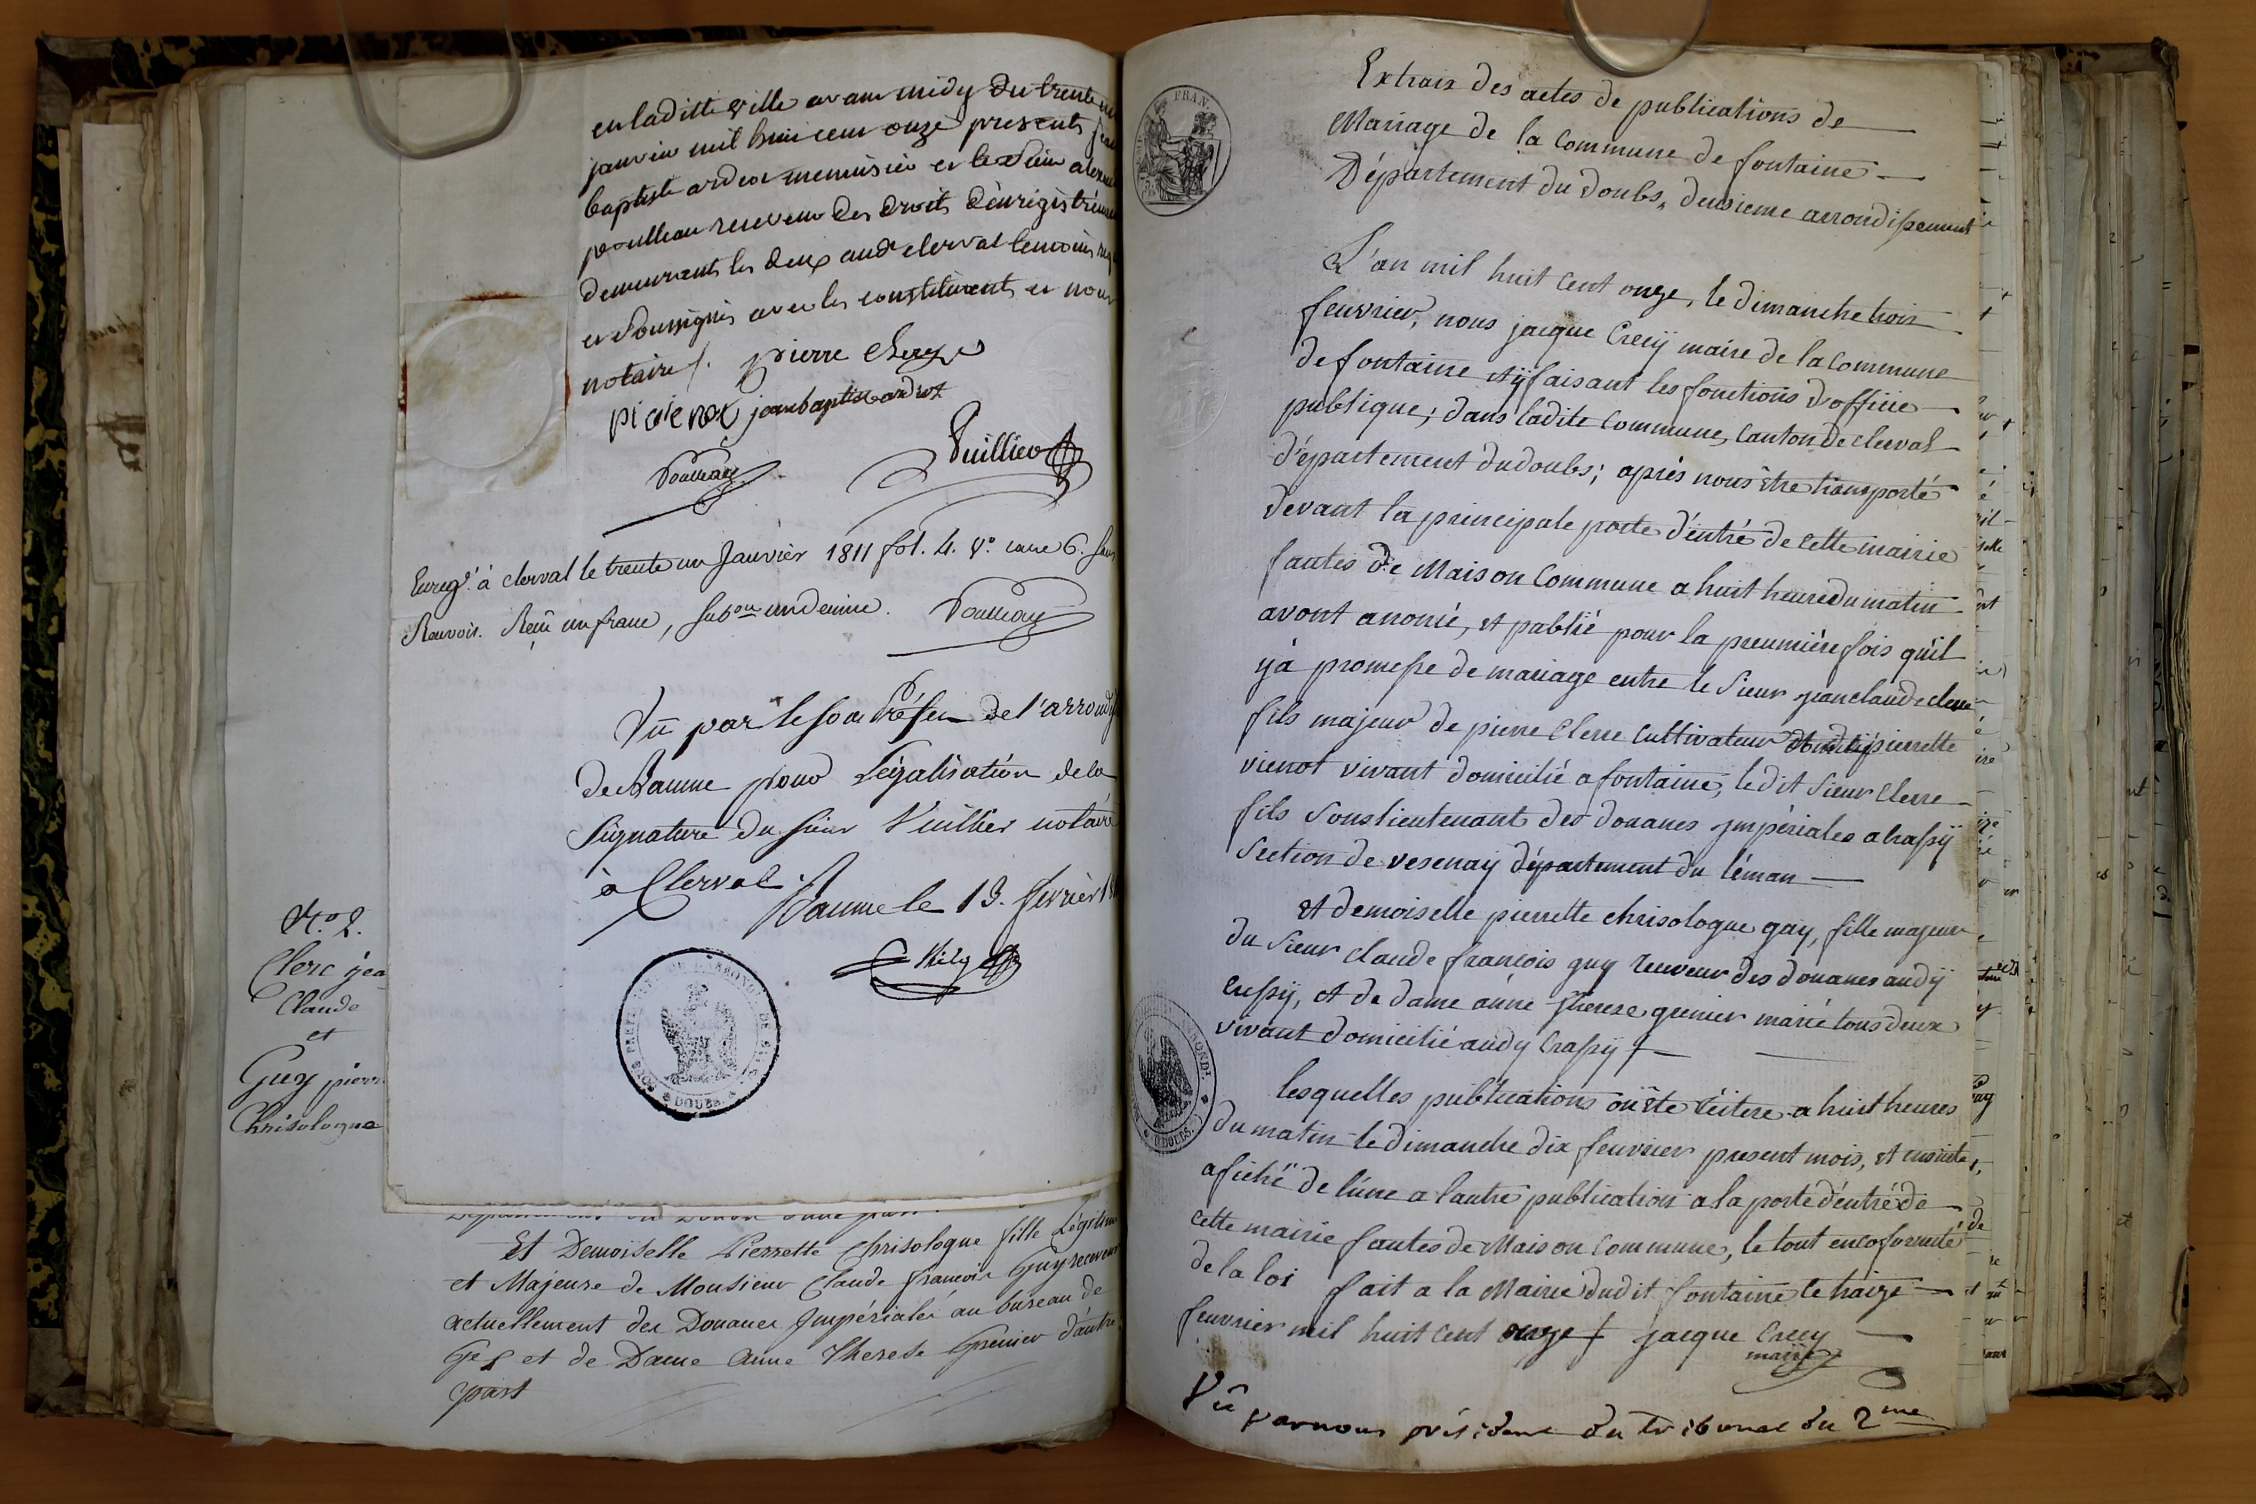 en laditte ville avant midy du trente un
janvier mil huit cent onze presents jean
baptiste ardiot menuisier et le Sieur alexan
poulleau receveur des droits d'enregistrement
demeurants les deux aud^t clerval temoins req
et Soussignés avec les constituants et nous
notaire /. pierre clerc
pierrot jeanbaptiste ardiot
Poulleau Vuillier
Enreg^é à clerval le trente un Janvier 1811 fol. 4. v^o case 6. Sans
Renvoi. Reçû un franc, Sub^on un decime. Poulleau
Vu par le Sous Préfet de l'arrondis
de Baume pour Légalisation de la
Signature du sieur Vuillier notaire
à Clerval /.
Baume le 13. fevrier 18
DOUBS
N.^o 2.
Clerc jea
Claude
et
Guy pierr
Chrisologue
Et Demoiselle Pierrette Chrisologue fille Légitime
et Majeure de Monsieur Claude françois Guy receveur
actuellement des Douanes Impériales au bureau de
Gex et de Dame Anne Therese Grenier d'autre
part
FRAN.
Extrais des actes de publications de
Mariage de la Commune de fontaine
Département du doubs, deusieme arrondissement
L'an mil huit cent onze, le dimanche trois
feuvrier, nous jacque Crecÿ maire de la Commune
de fontaine et ÿ faisant les fonctions d'officie
publique; dans ladite Commune, Canton de clerval
département du doubs; aprés nous être transporté
devant la principale porte d'entré de cette mairie
fautes de Maison Commune a huit heure du matin
avont anoncé, et publié pour la preumière fois qu'il
ÿ à promesse de mariage entre le Sieur jean claude clerc
fils majeur de pierre Clerc Cultivateur pierrette
vienot vivant domicilié a fontaine, le dit Sieur Clerc
fils Souslieutenant des douanes jmpériales a hassÿ
Section de vesenaÿ département du léman
Et demoiselle pierrette chrisologue gay, fille majeur
du Sieur Claude francois guy receveur des douanes audÿ
Crassÿ, et de dame anne therese grenier marié tous deux
vivant domicilié audÿ Crassÿ
lesquelles publications oû été réitere a huit heures
du matin le dimanche dix feuvrier present mois, et ensuite
afiché de l'une a l'autre publication a la porte d'entré de
cette mairie fautes de Maison Commune, le tout en coformité
de la loi fait a la Mairie dudit fontaine le traize
feuvrier mil huit cent onze jacque Crecy
maire
Vû par nous président du tribunal du 2^me
DOUBS